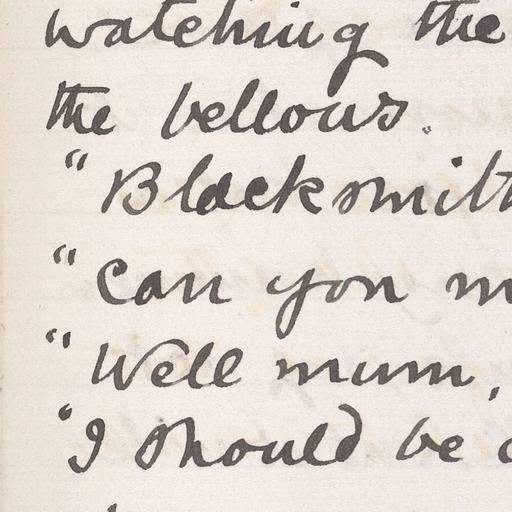 watching the
the bellows.
"Blacksmith
"Can you m
"Well mum,
"I should be